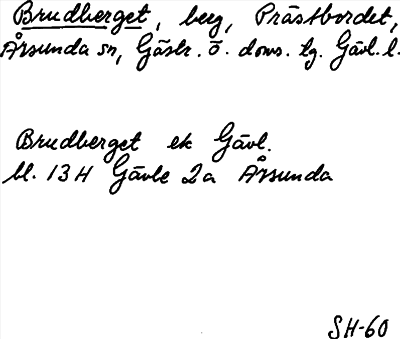 Brudberget, berg, Prästbordet,
Årsunda sn, Gästr. ö. doms. tg. Gävl. l.
Brudberget ek Gävl.
bl. 13H Gävle 2a Årsunda
SH-60